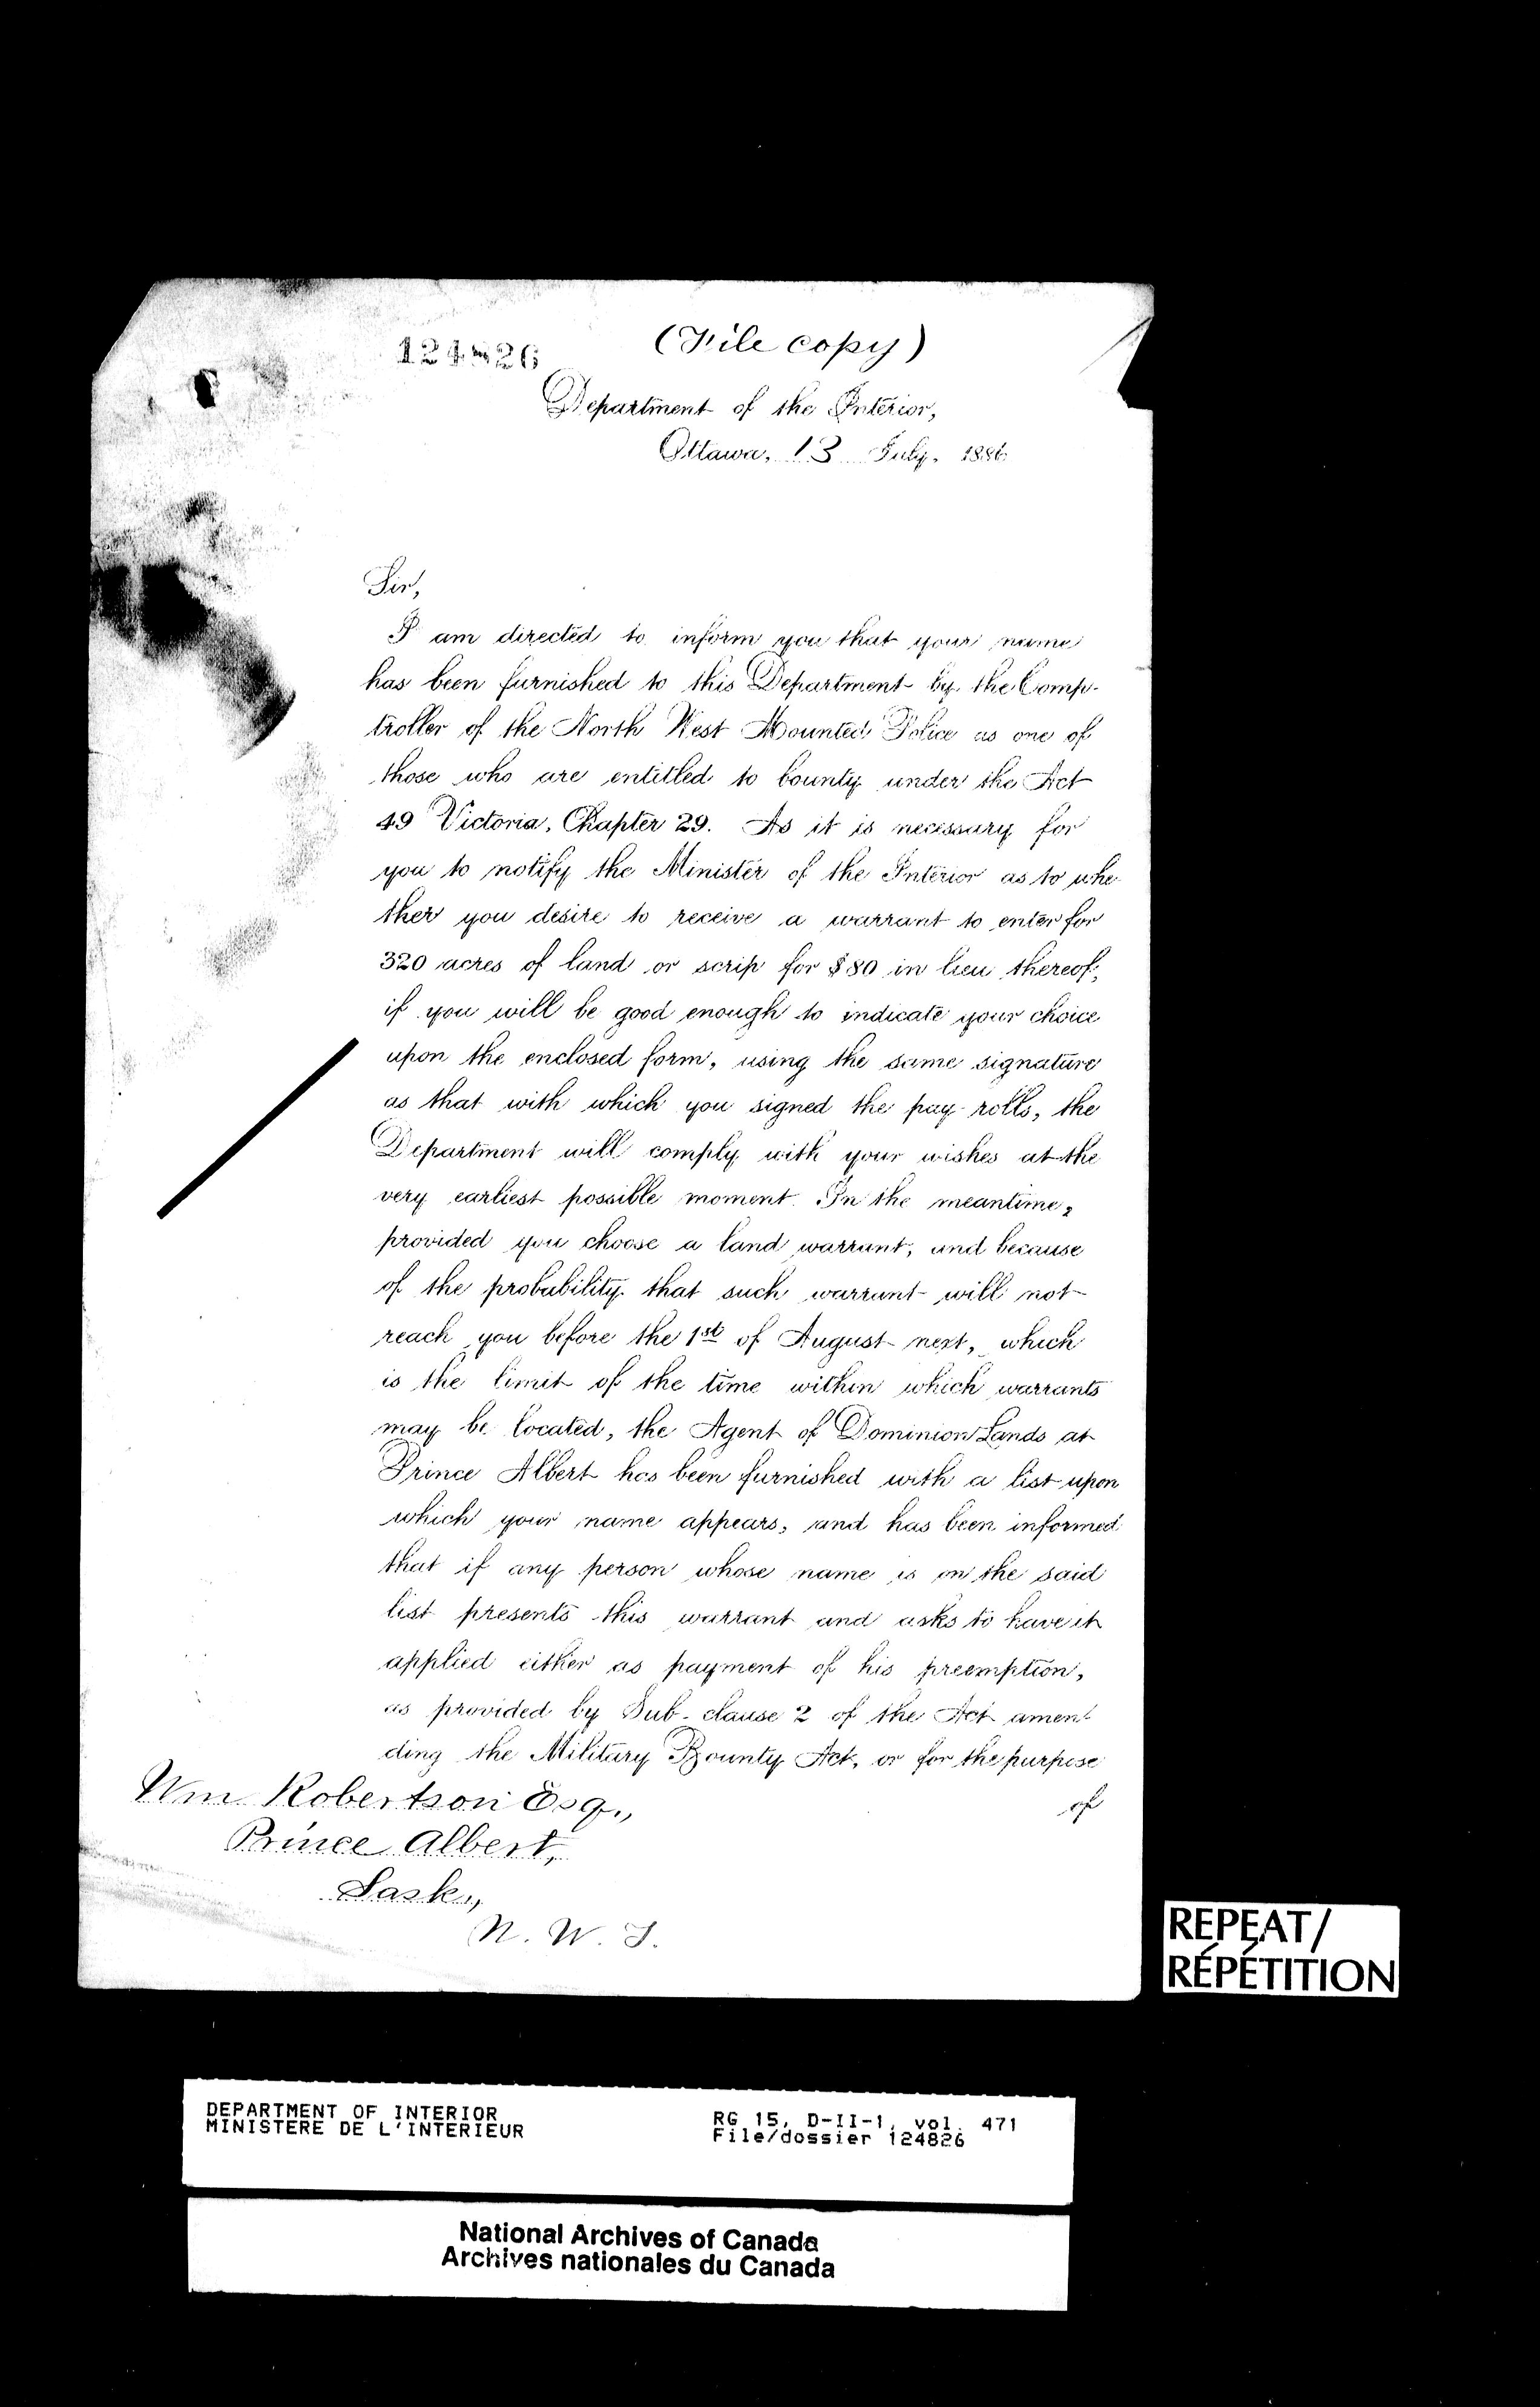 124826
(File copy)
Department of the Interior,
Ottawa, 13 July, 1886
Sir,
I am directed to inform you that your name
has been furnished to this Department by the Comp-
troller of the North West Mounted Police as one of
those who are entitled to bounty under the Act
49 Victoria, Chapter 29. As it is necessary for
you to notify the Minister of the Interior as to whe-
ther you desire to receive a warrant to enter for
320 acres of land or scrip for $80 in lieu thereof,
if you will be good enough to indicate your choice
upon the enclosed form, using the same signature
as that with which you signed the pay-rolls, the
Department will comply with your wishes at the
very earliest possible moment. In the meantime,
provided you choose a land warrant, and because
of the probability that such warrant will not
reach you before the 1st of August next, which
is the limit of the time within which warrants
may be located, the Agent of Dominion Lands at
Prince Albert has been furnished with a list upon
which your name appears, and has been informed
that if any person whose name is on the said
list presents this warrant and asks to have it
applied either as payment of his preemption,
as provided by Sub-clause 2 of the Act amen-
ding the Military Bounty Act, or for the purpose
of
Wm Robertson Esq.,
Prince Albert,
Sask.,
N. W. T.
REPEAT/
RÉPÉTITION
DEPARTMENT OF INTERIOR
MINISTERE DE L'INTERIEUR
RG 15, D-II-1, vol. 471
File/dossier 124826
National Archives of Canada
Archives nationales du Canada